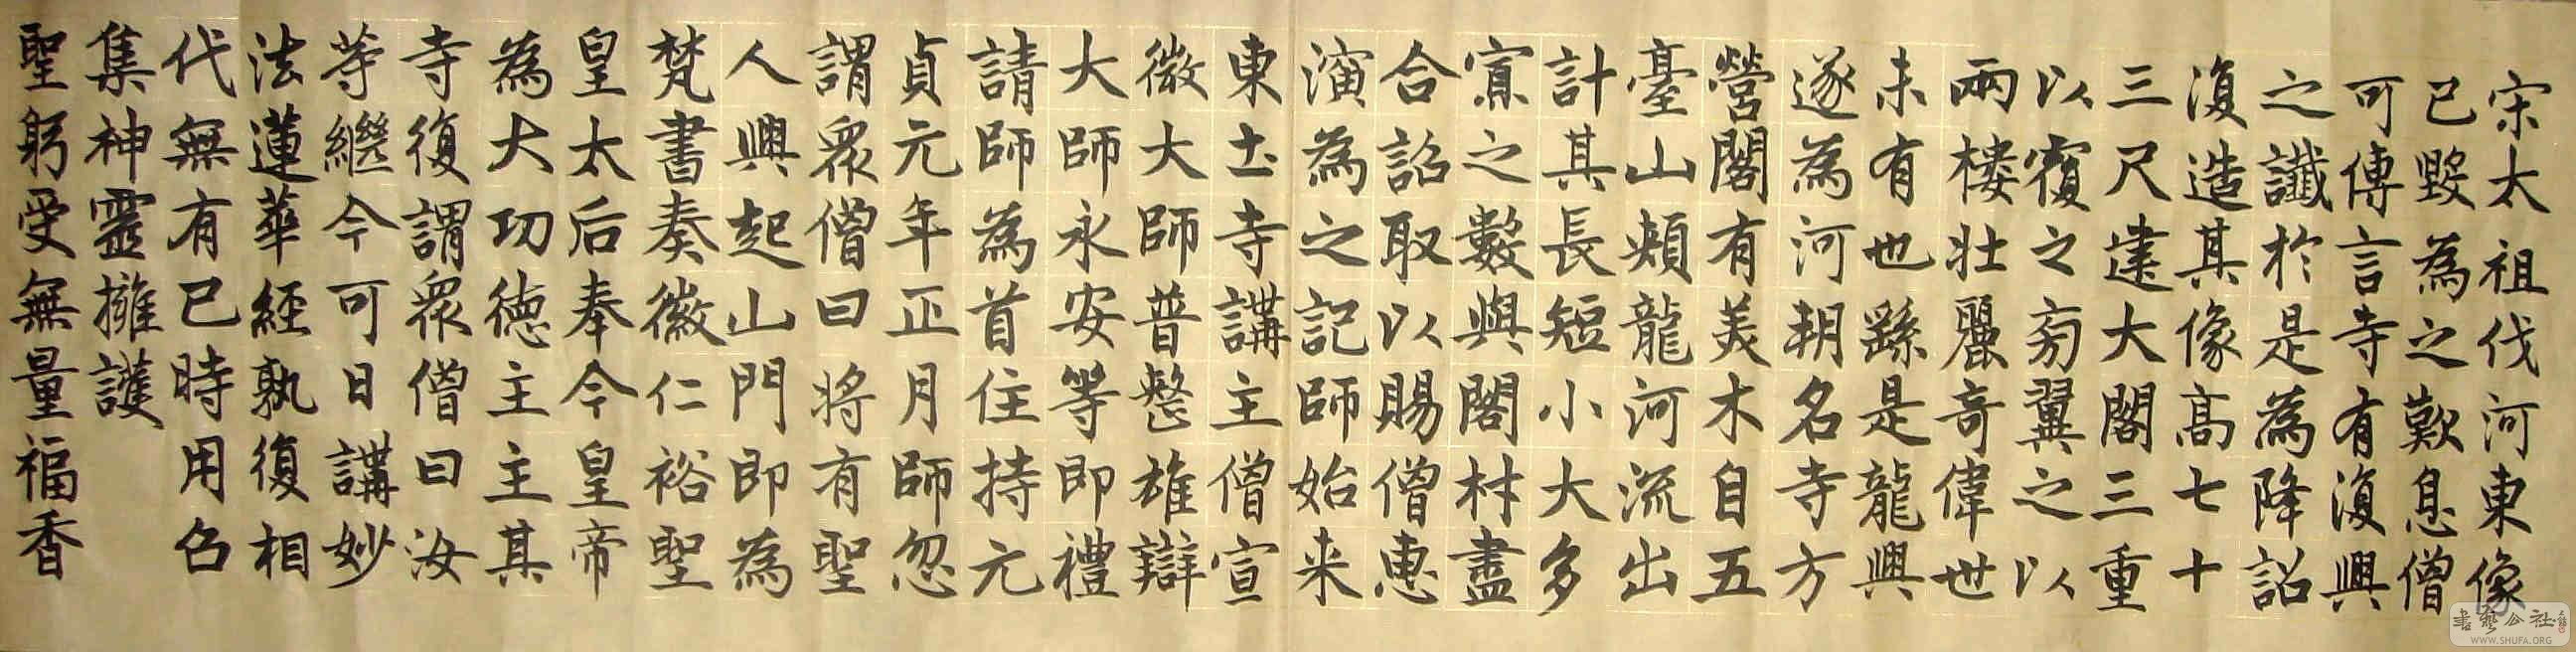 宋太祖伐河東像
已毀為之歎息僧
可傳言寺有復興
之讖於是為降詔
復造其像高七十
三尺建大閣三重
以覆之旁翼之以
兩樓壯麗奇偉世
未有也繇是龍興
遂為河朔名寺方
營閣有美木自五
臺山頰龍河流出
計其長短小大多
寡之數與閣材盡
合詔取以賜僧惠
演為之記師始来
東土寺講主僧宣
微大師普整雄辯
大師永安等即禮
請師為首住持元
貞元年正月師忽
謂眾僧曰將有聖
人興起山門即為
梵書奏徽仁裕聖
皇太后奉今皇帝
為大功德主主其
寺復謂眾僧曰汝
等繼今可日講妙
法蓮華經孰復相
代無有已時用召
集神靈擁護
聖躬受無量福香
書藝公社
WWW.SHUFA.ORG